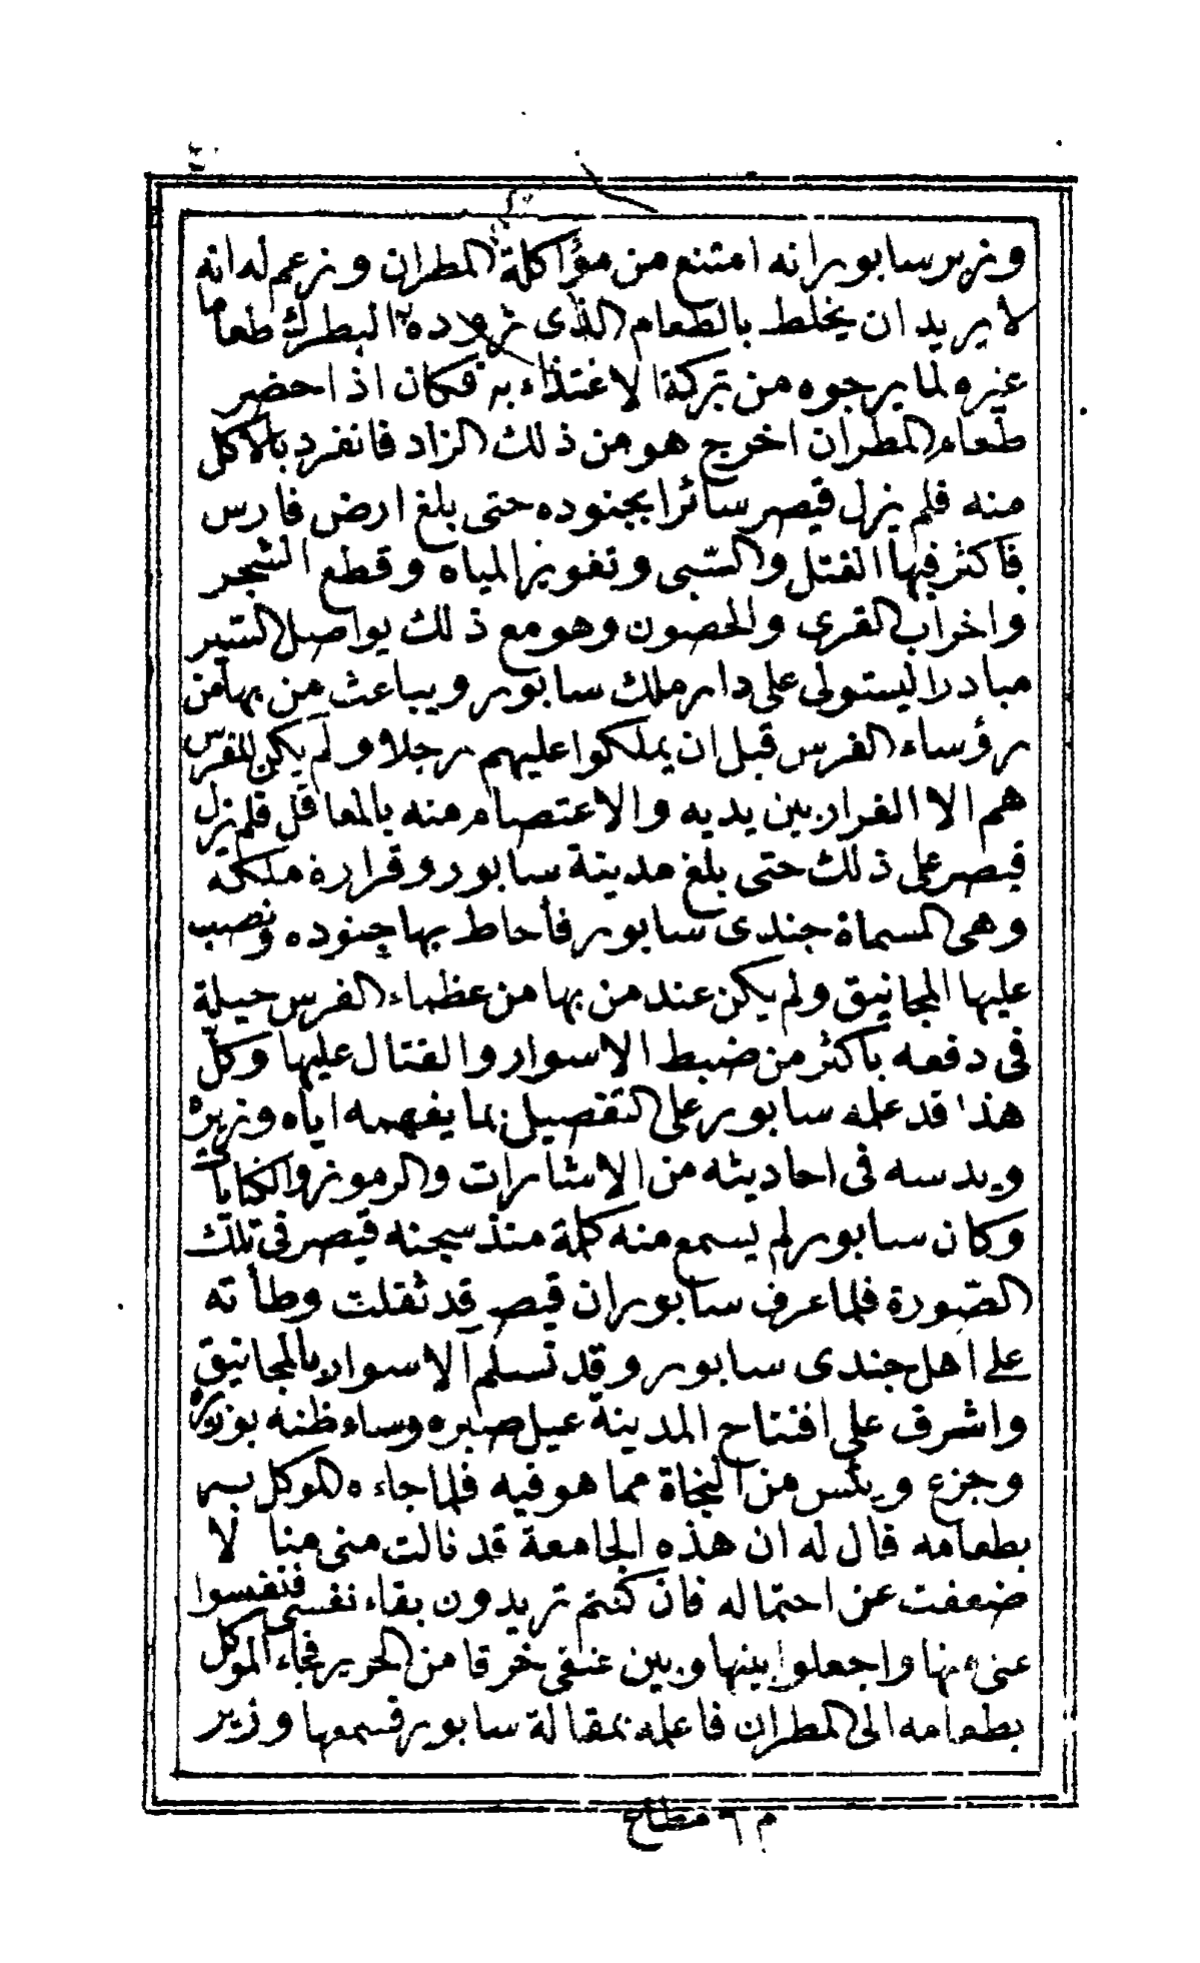 وزير سابور انه امتنع من مؤاكلة المطران وزعم له انه
لا يريد ان يخلط بالطعام الذى زوده البطرك طعاما
غيره لما يرجوه من بركة الاغتذاء به فكان اذا حضر
طعام المطران اخرج هو من ذلك الزاد فانفرد بالاكل
منه فلم يزل قيصر سائرا بجنوده حتى بلغ ارض فارس
فأكثر فيها القتل والسّبى وتغوير المياه وقطع الشجر
واخراب القرى والحصون وهو مع ذلك يواصل السّير
مبادرا ليستولى على دار ملك سابور ويباغث من بها من
رؤساء الفرس قبل ان يملكوا عليهم رجلا ولم يكن للفرس
هم الا الفرار بين يديه والاعتصام منه بالمعاقل فلم يزل
قيصر على ذلك حتى بلغ مدينة سابور وقرارة ملكه
وهى المسماة جندى سابور فأحاط بها جنوده ونصب
عليها المجانيق ولم يكن عند من بها من عظماء الفرس حيلة
فى دفعه بأكثر من ضبط الاسوار والقتال عليها وكلّ
هذا قد علمه سابور على التفصيل بما يفهمه اياه وزيره
ويدسه فى احاديثه من الاشارات والرموز والكنايات
وكان سابور لم يسمع منه كلمة منذ سجنه قيصر فى تلك
الصّورة فلما عرف سابور ان قيصر قد ثقلت وطأته
على اهل جندى سابور وقد تسلم الاسوار بالمجانيق
واشرف على افتتاح المدينة عيل صبره وساء ظنه بوزيره
وجزع ويئس من النجاة مما هو فيه فلما جاءه الموكل به
بطعامه قال له ان هذه الجامعة قد نالت منى منالا
ضعفت عن احتماله فان كنتم تريدون بقاء نفسى فنفسوا
عنى منها واجعلوا بينها وبين عنقى خرقا من الحرير فجاء الموكل
بطعامه الى المطران فاعلمه بمقالة سابور فسمعها وزير
م ٦ مطاح